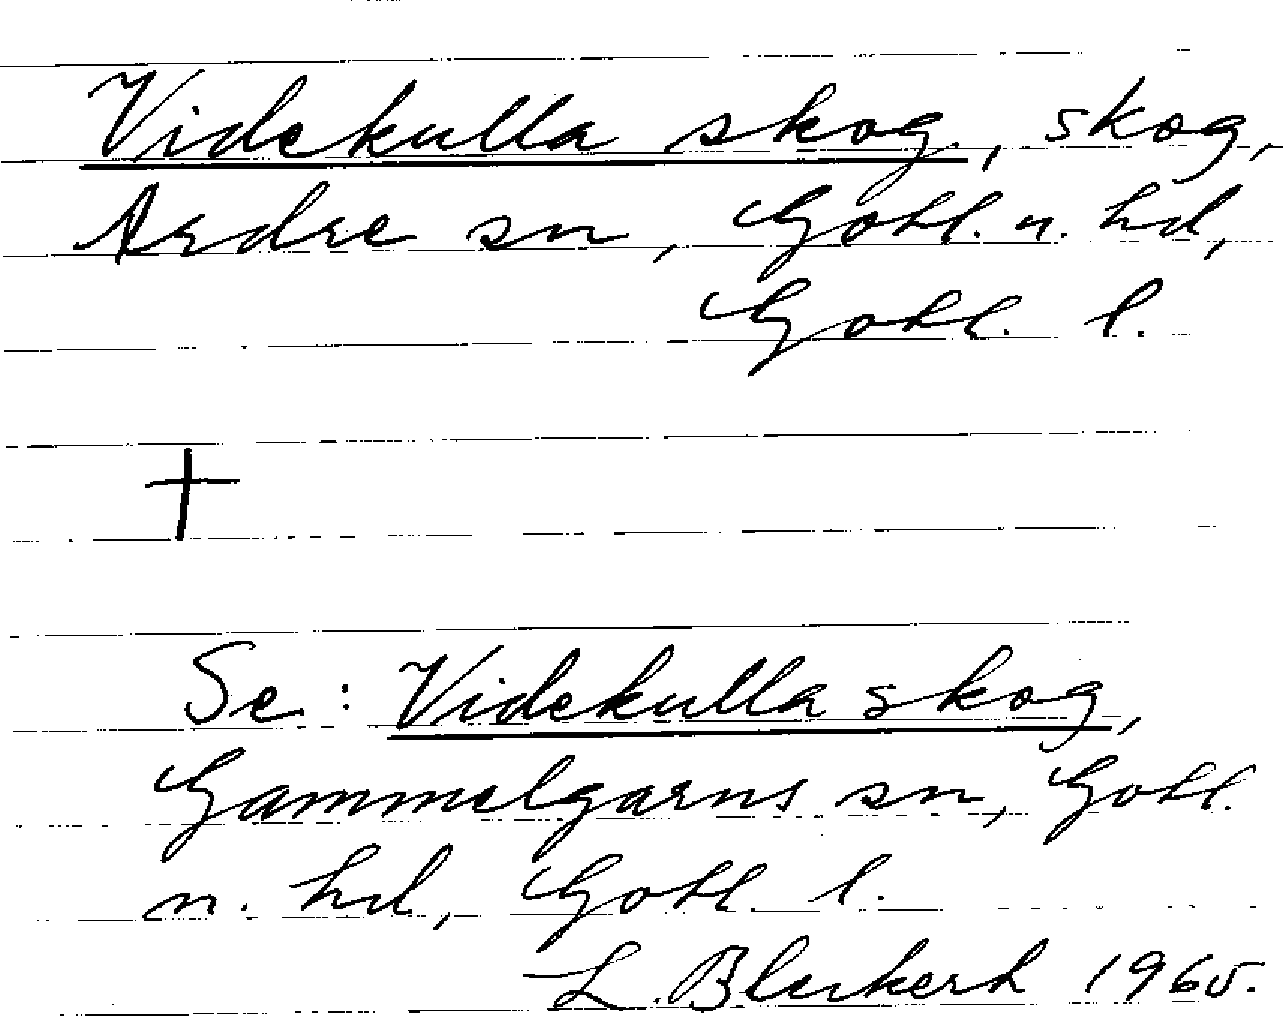 Videkulla skog, skog,
Ardre sn, Gotl. n. hd,
Gotl. l.
†
Se: Videkulla skog,
Gammelgarns sn, Gotl.
n. hd, Gotl. l.
L. 1965.